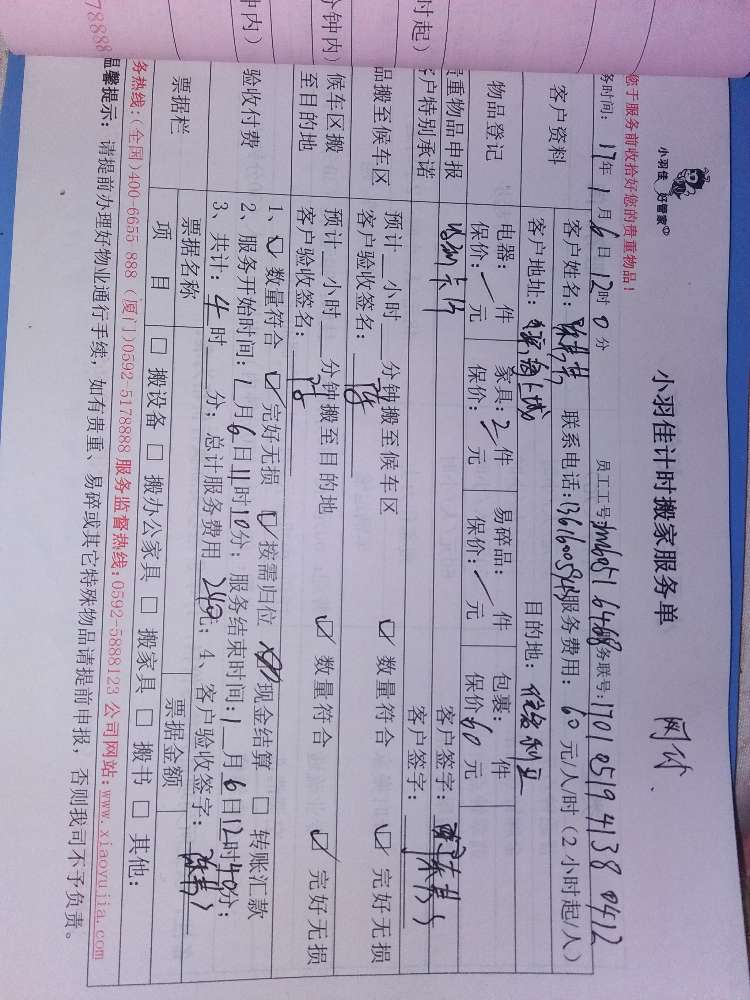 78888
时起)
钟内)
时内)
您于服务前收拾好您的贵重物品!
小羽佳 好管家
小羽佳计时搬家服务单
网付
务时间: 17年1月6日12时0分 员工工号: 务联号:1701 0519 4138 0412
客户资料
客户姓名: 联系电话: 服务费用:60元/人/时(2小时起/人)
客户地址: 目的地:
物品登记
电器: 件 家具:2件 易碎品: 件 包裹: 件
保价: 元 保价: 元 保价: 元 保价:60元
贵重物品申报 客户签字:
客户特别承诺 客户签字:
品搬至候车区
预计 小时 分钟搬至候车区 ☑ 数量符合 ☑ 完好无损
客户验收签名:
候车区搬至目的地
预计 小时 分钟搬至目的地 ☑ 数量符合 ☑ 完好无损
客户验收签名:
验收付费
1、☑ 数量符合 ☑ 完好无损 ☑ 按需归位 现金结算 □ 转账汇款
2、服务开始时间:1月6日11时10分;服务结束时间:1月6日12时40分;
3、共计:4时 分;总计服务费用240元;4、客户验收签字:
票据栏
票据名称 票据金额
项 目 □ 搬设备 □ 搬办公家具 □ 搬家具 □ 搬书 □ 其他:
务热线:(全国)400-6655 888 (厦门)0592-5178888 服务监督热线:0592-5888123 公司网站:www.xiaoyujia.com
温馨提示:请提前办理好物业通行手续,如有贵重、易碎或其它特殊物品请提前申报,否则我司不予负责。